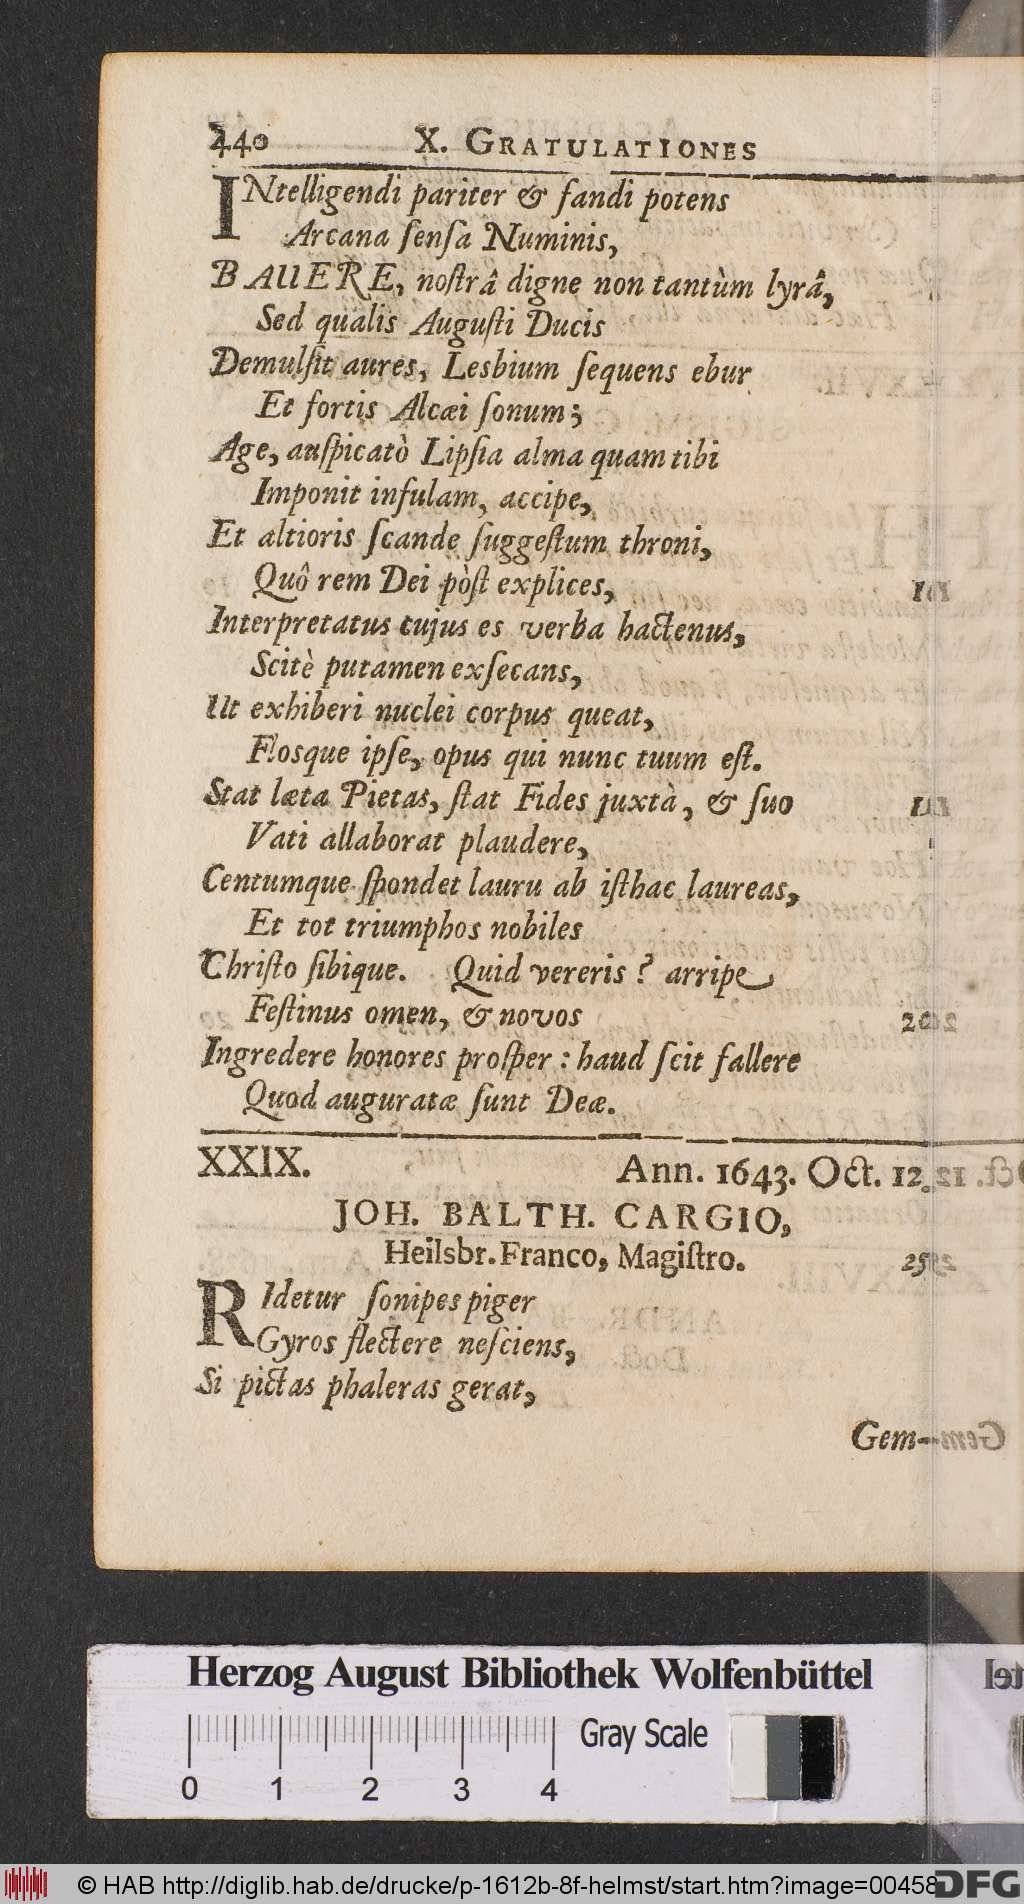 240 X. GRATULATIONES
INtelligendi pariter & fandi potens
Arcana ſenſa Numinis,
BAUERE, noſtrâ digne non tantùm lyrâ,
Sed qualis Auguſti Ducis
Demulſit aures, Lesbium ſequens ebur
Et fortis Alcæi ſonum;
Age, auſpicatò Lipſia alma quam tibi
Imponit infulam, accipe,
Et altioris ſcande ſuggeſtum throni,
Quô rem Dei pòſt explices,
Interpretatus cujus es verba hactenus,
Scitè putamen exſecans,
Ut exhiberi nuclei corpus queat,
Flosque ipſe, opus qui nunc tuum eſt.
Stat læta Pietas, ſtat Fides juxtà, & ſuo
Vati allaborat plaudere,
Centumque ſpondet lauru ab iſthac laureas,
Et tot triumphos nobiles
Chriſto ſibique. Quid vereris? arripe
Feſtinus omen, & novos
Ingredere honores proſper: haud ſcit fallere
Quod auguratæ ſunt Deæ.
XXIX. Ann. 1643. Oct. 12.
JOH. BALTH. CARGIO,
Heilsbr. Franco, Magiſtro.
RIdetur ſonipes piger
Gyros flectere neſciens,
Si pictas phaleras gerat,
Gem-
Herzog August Bibliothek Wolfenbüttel
Gray Scale
0 1 2 3 4
© HAB http://diglib.hab.de/drucke/p-1612b-8f-helmst/start.htm?image=00458
DFG